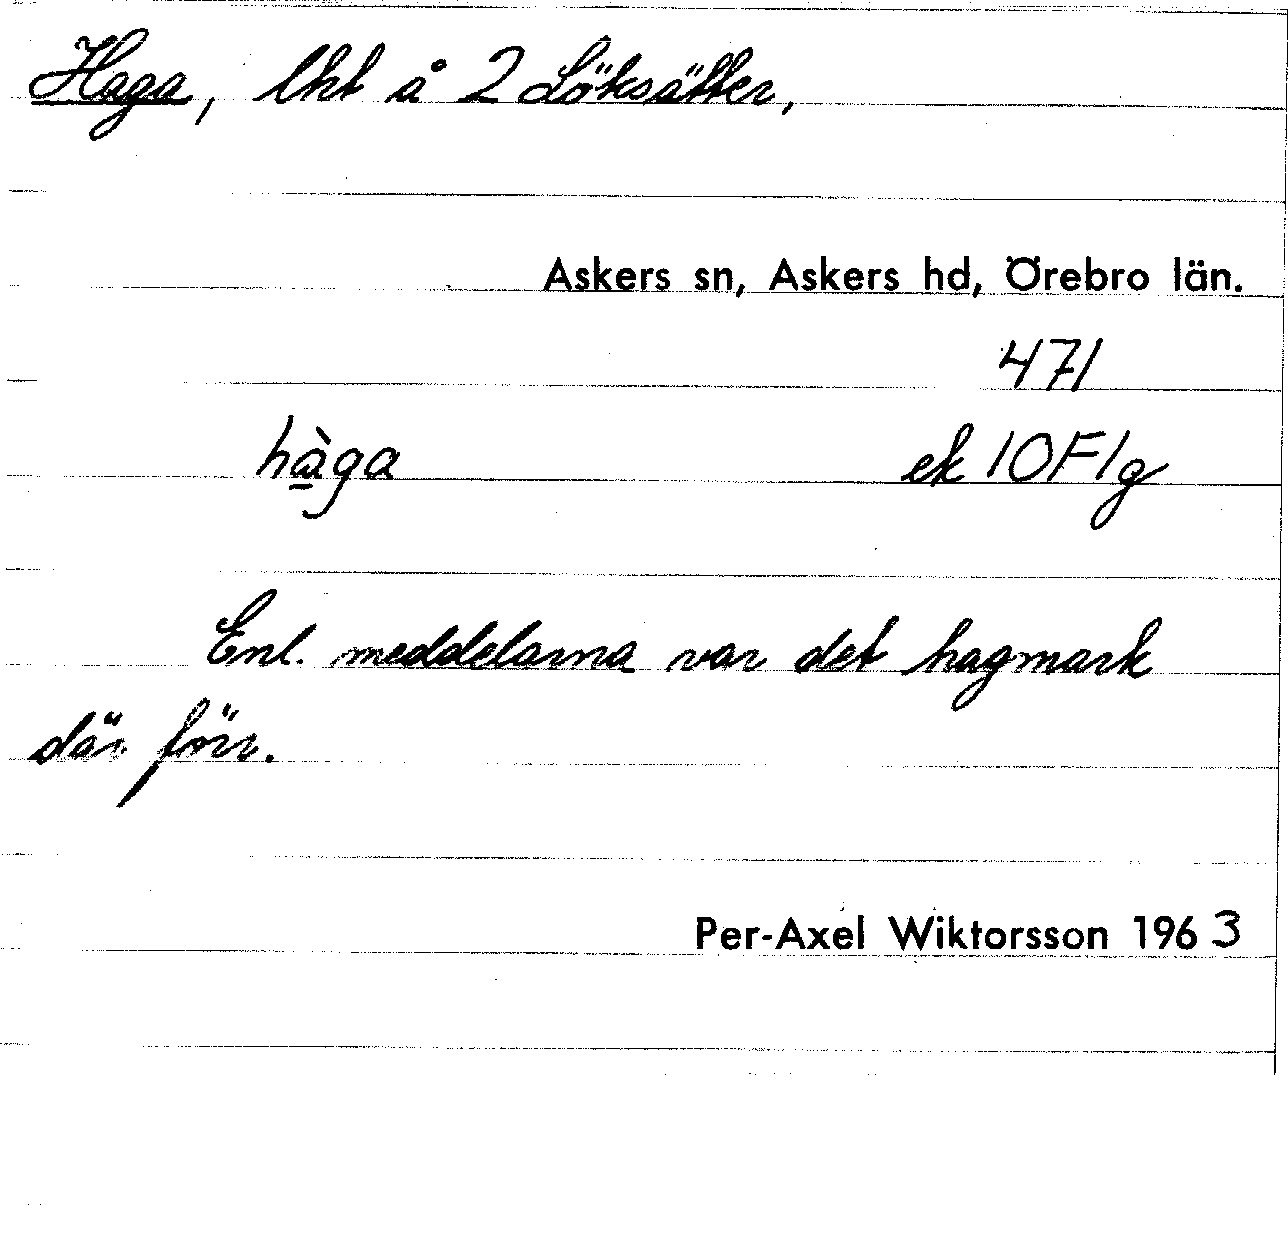 Haga, lht å 2 Löksätter,
Askers sn, Askers hd, Örebro län.
471
hàga ek 10F1g
Enl. meddelarna var det hagmark
där förr.
Per-Axel Wiktorsson 1963